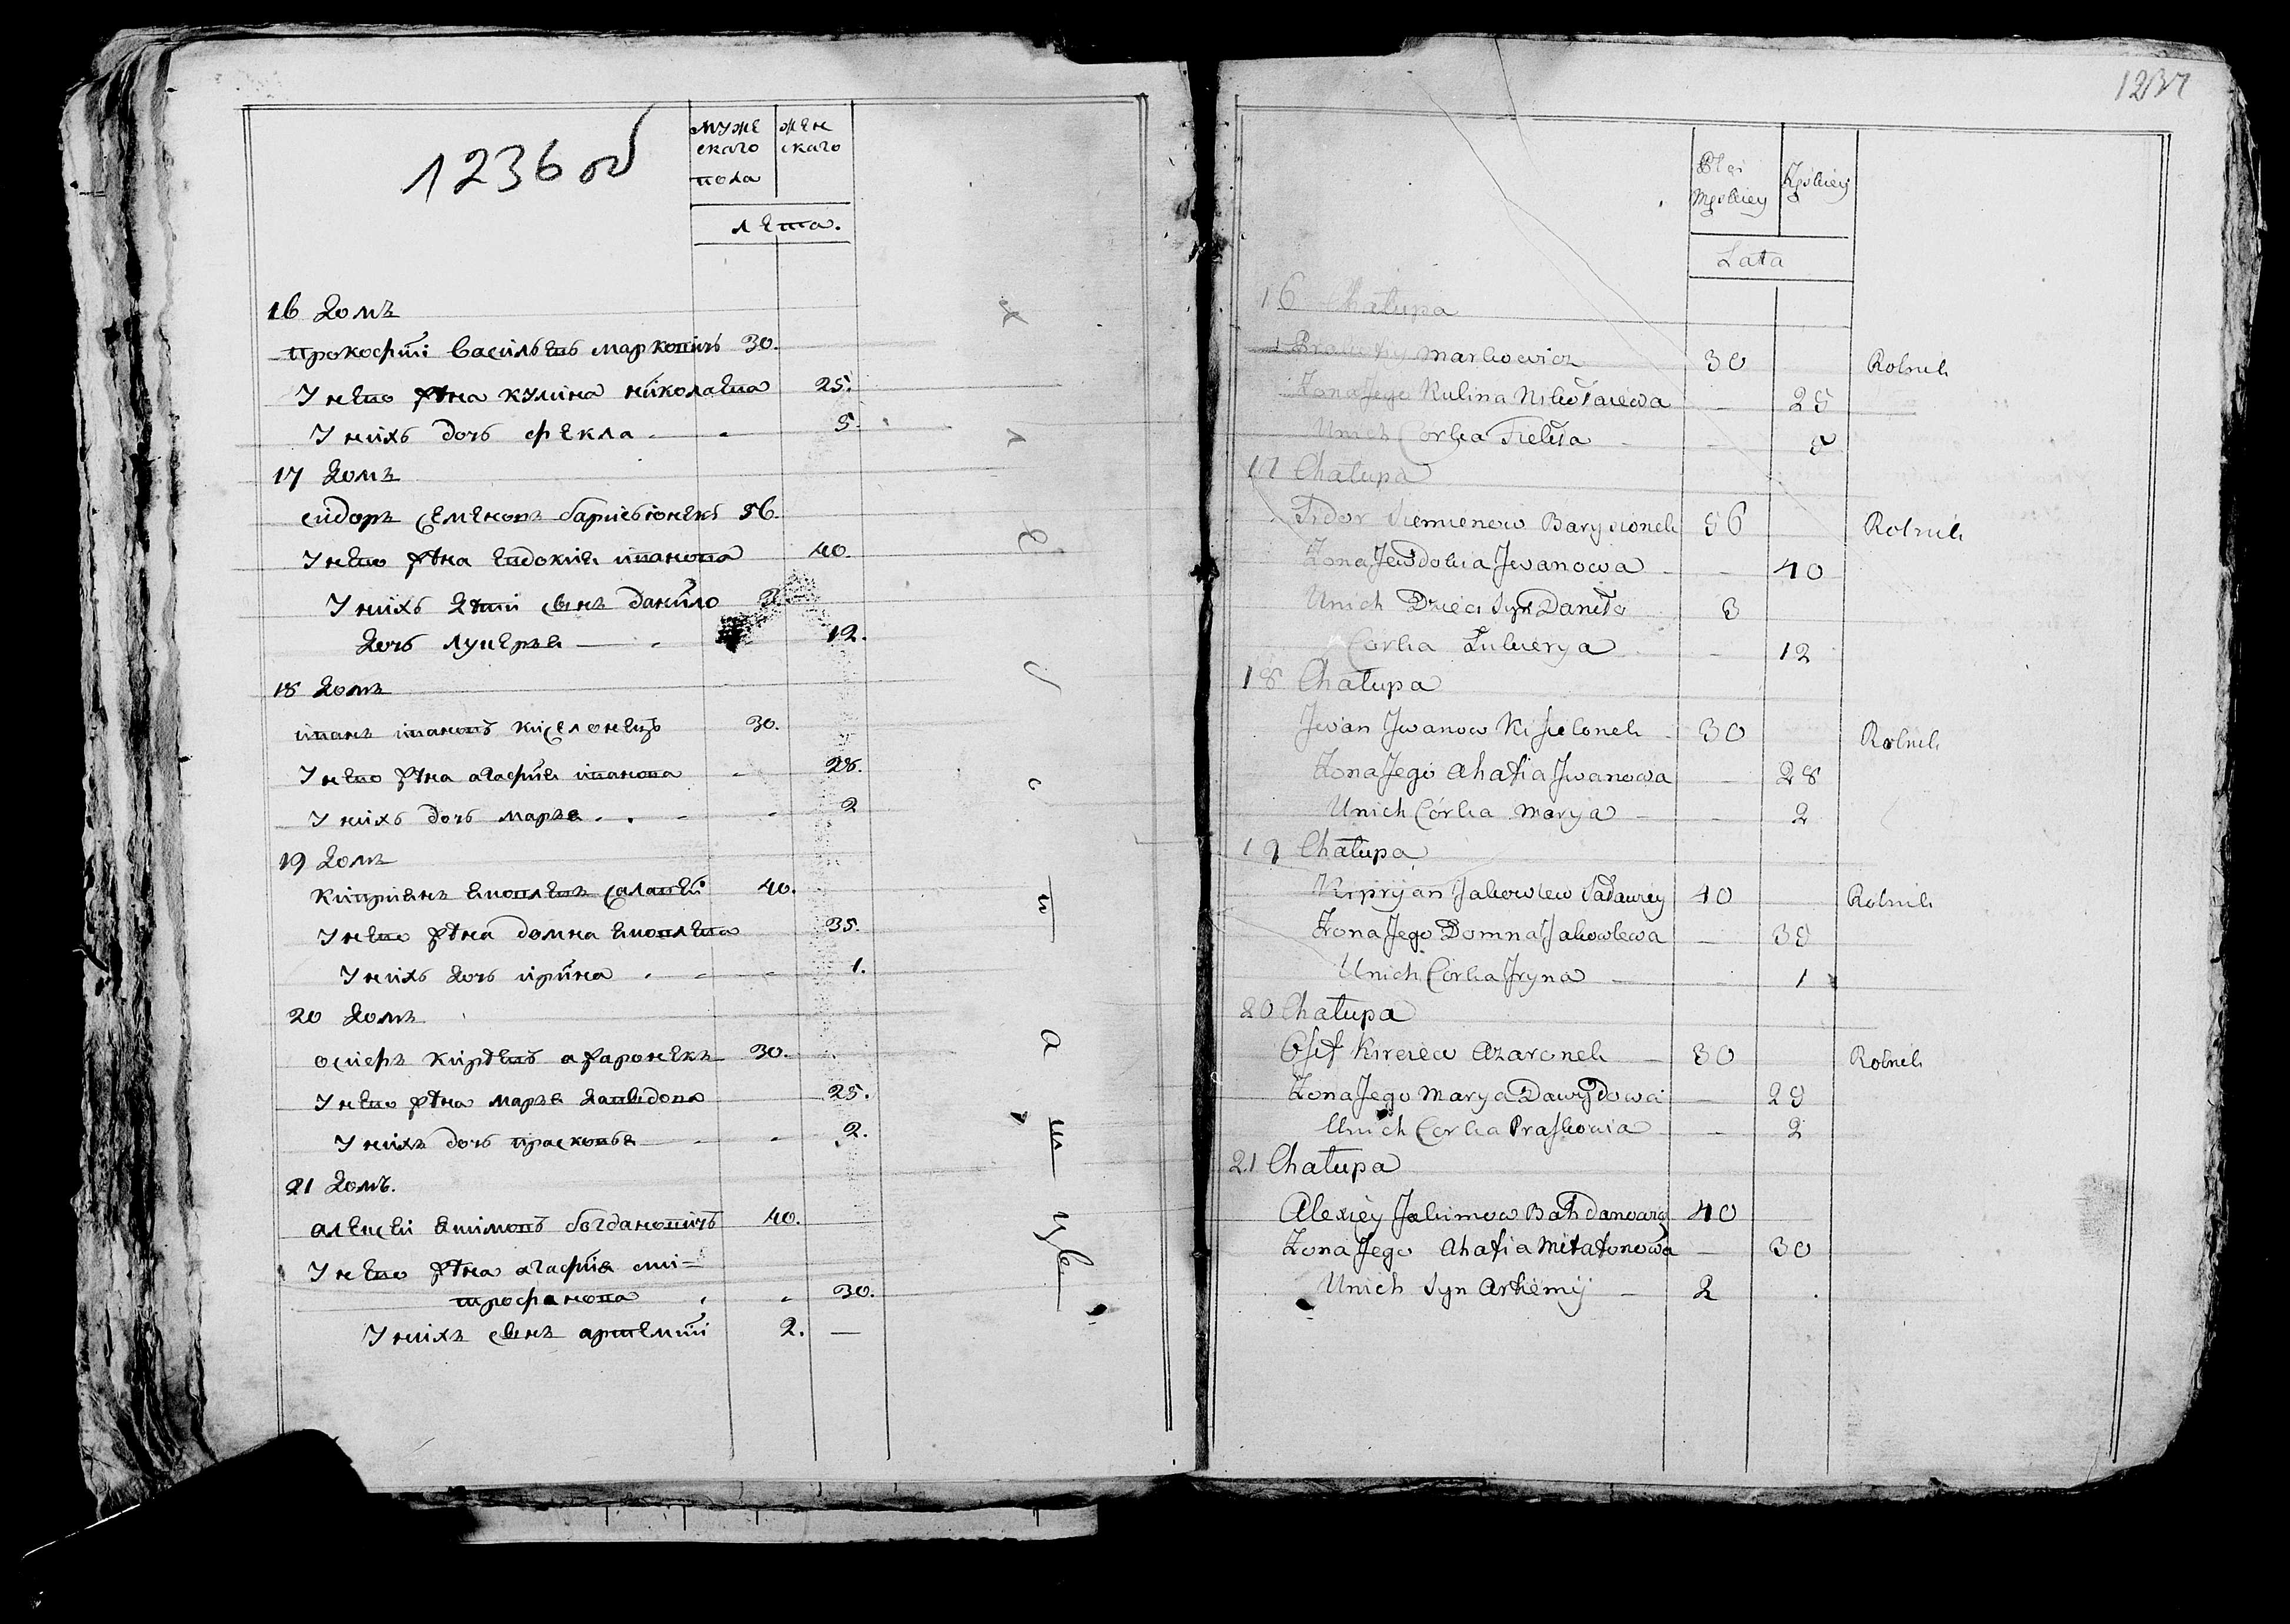 1236 об
муже жен
скаго скаго
пола
лета.
16 домъ
прокофтй василъевъ марковичъ 30.
У нево жена кулина николаева 25.
У нихъ дочъ фекла - - 5.
17 домъ
сидоръ семеновъ барисьюнекъ 56.
У нево жена евдокия иванова 40
У нихъ дети сынъ данило 3
дочъ лукеръя — - 12.
18 домъ
иванъ ивановъ киселонекъ 30.
У нево жена агафия иванова - 28.
У нихъ дочъ маръя . . - - 2
19 домъ
киприянъ яковлевъ салавей 40.
У нево жена домна яковлева 35.
У нихъ дочъ ирина . - - 1.
20 домъ
осифъ киреевъ азаронекъ 30.
У нево жена маръя давыдова 25.
У нихъ дочъ прасковья - - 2.
21 домъ.
алексей якимовъ богдановичъ 40.
У нево жена агафия ми=
трофанова , - 30.
У нихъ сынъ артемий 2. —
х
л
е
б
о
п
а
ш
цы
1237
Płci
Męskiey Żęskiey
Lata
16 Chałupa
Prakofiy Markowicz 30 Rolnik
Żona Jego Kulina Nikołaiewa — 25
Unich Córka Fiekła - - 5
17 Chałupa
Sidor Siemienow Barysionek 56 Rolnik
Żona Jewdokia Jwanowa - — 40
Unich Dzieci Syn Daniło 3
Córka Łukierya - 12
18 Chałupa
Jwan Jwanow Kisielonek - 30 Rolnik
Żona Jego Ahafia Jwanowa — 28
Unich Córka Marya — - 2
19 Chałupa
Kipryan Jakowlew Saławiey 40 Rolnik
Żona Jego Domna Jakowlewa — 35
Unich Córka Jryna — - 1
20 Chałupa
Osif Kireiew Azaronek — 30 Rolnik
Żona Jego Marya Dawydowa — 25
Unich Córka Praskowia — - 2
21 Chałupa
Alexiey Jakimow Bahdanowicz 40
Żona Jego Ahafia Mitafonowa — 30
Unich Syn Artiemiy — 2 .